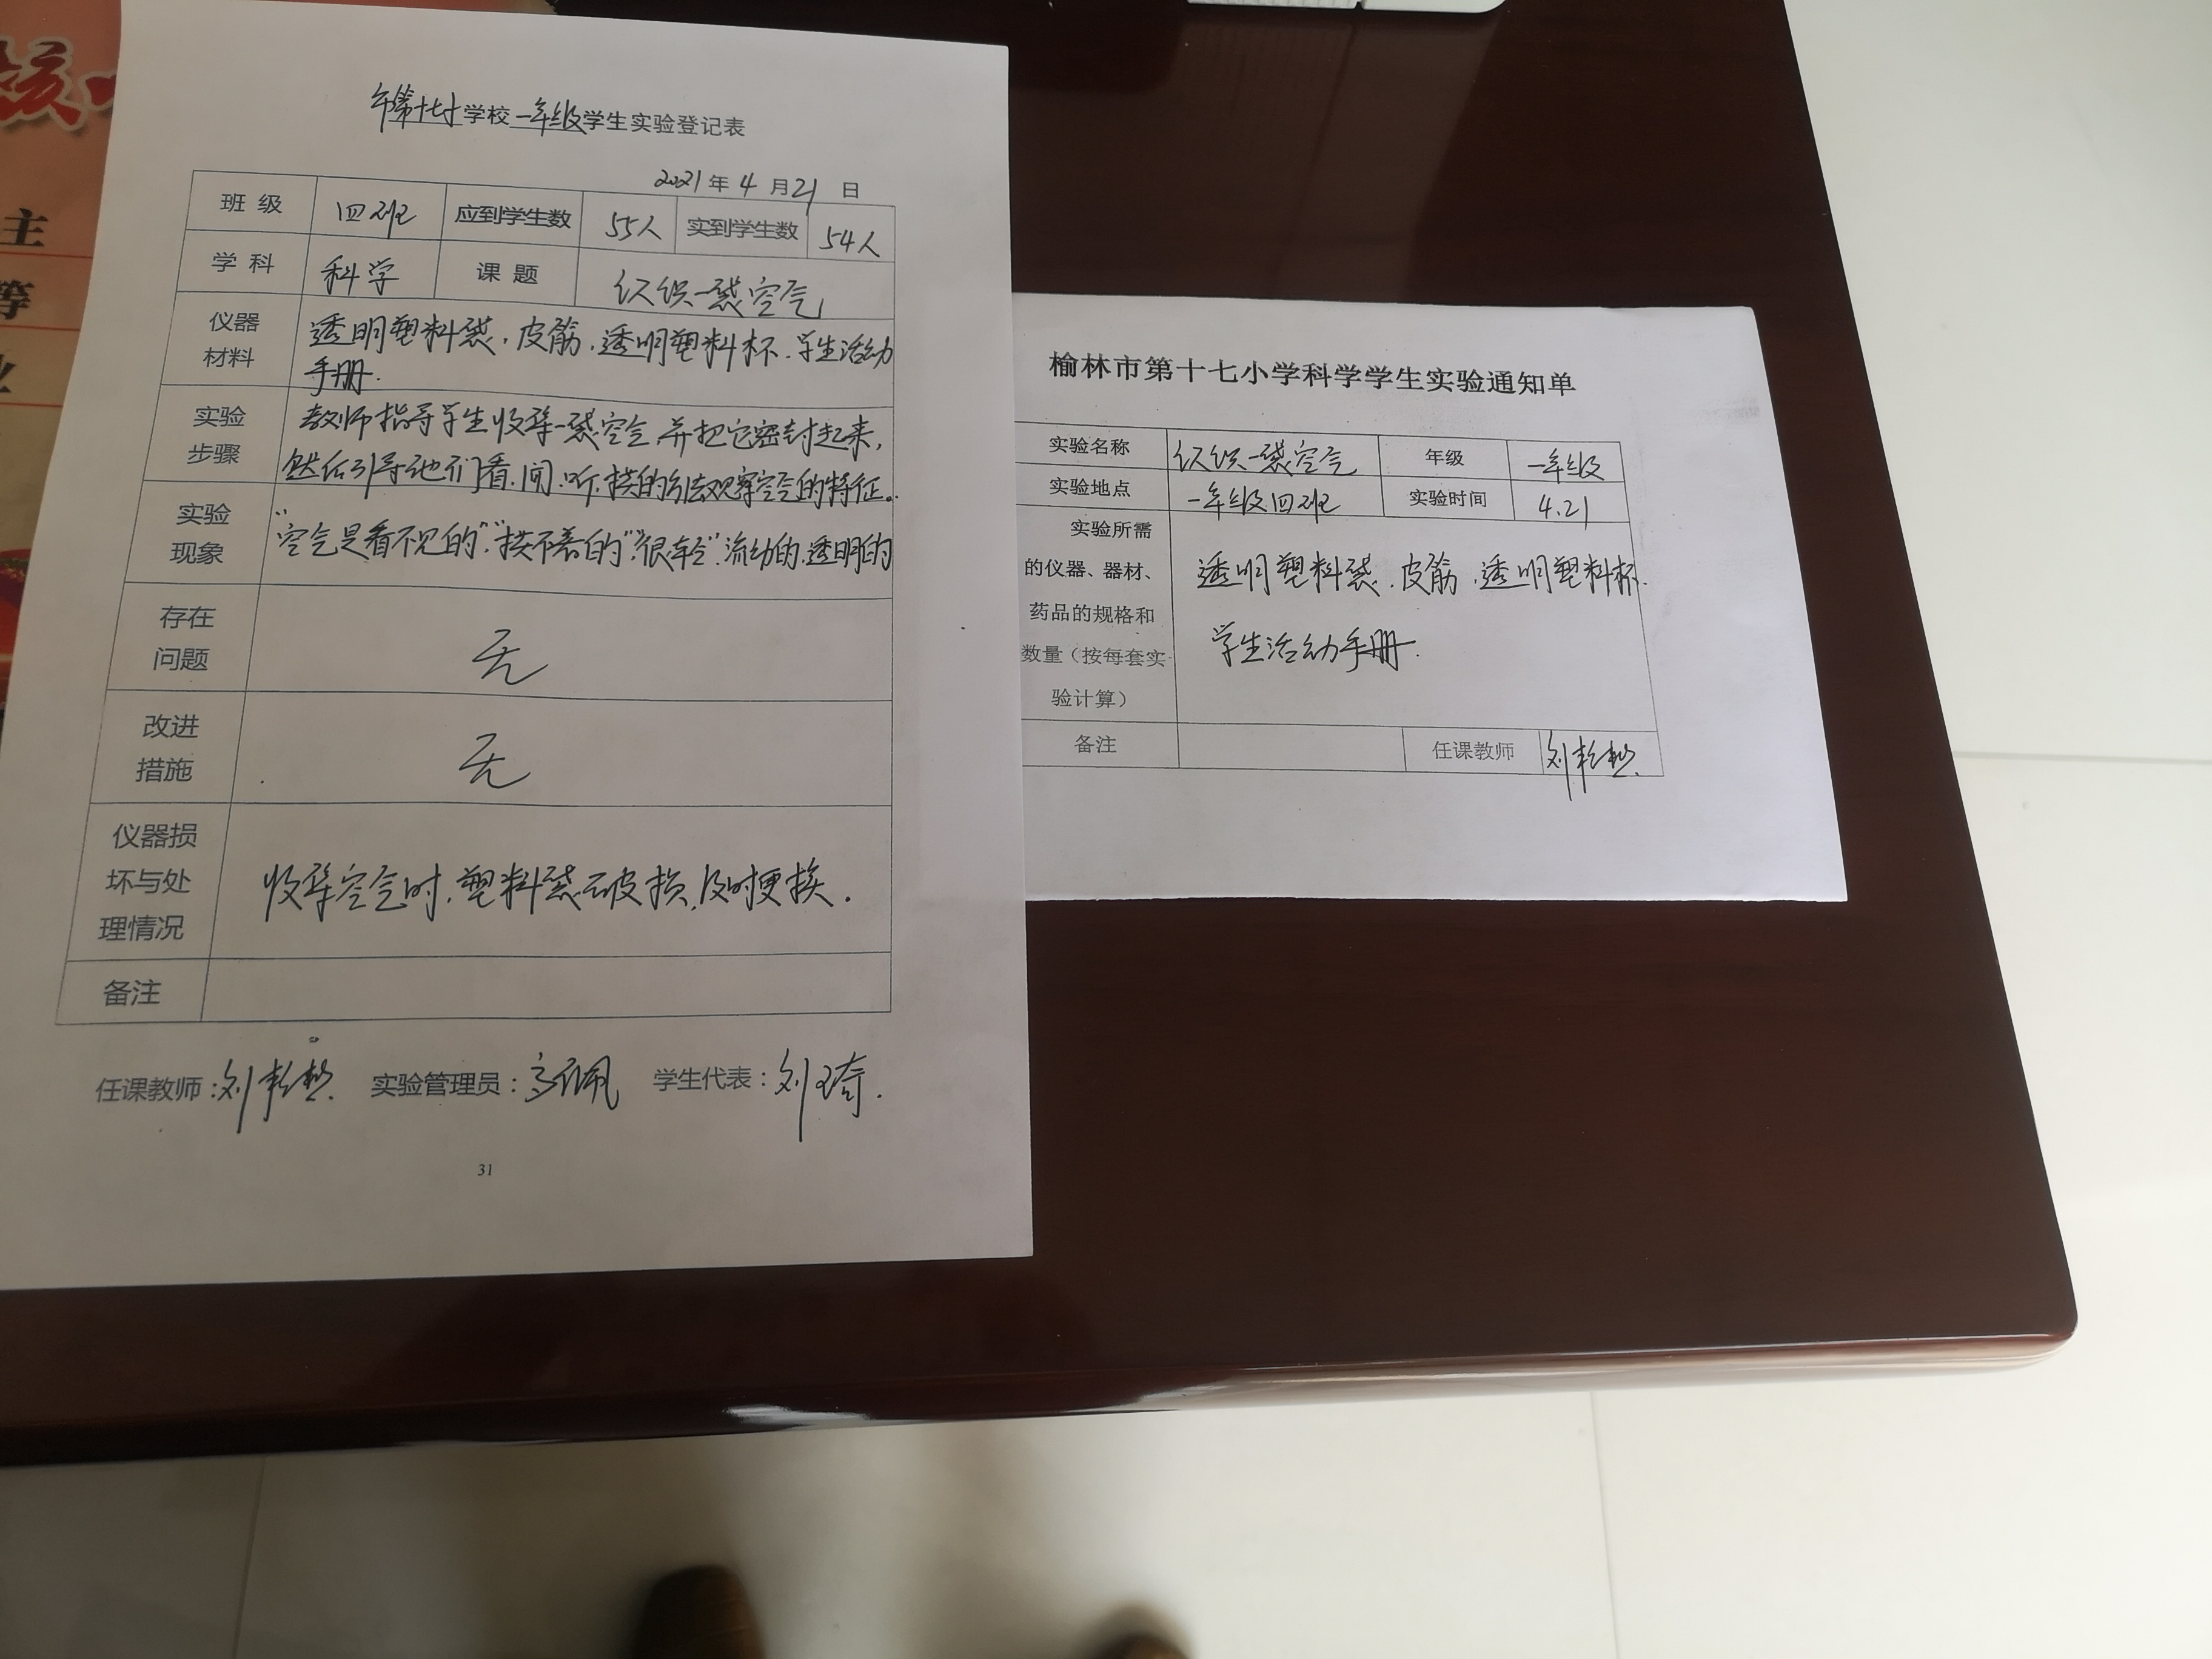 核
主
等
学校一年级学生实验登记表
2021年4月21日
班级 四班 应到学生数 55人 实到学生数 54人
学科 科学 课题 认识一袋空气
仪器材料 透明塑料袋、皮筋、透明塑料杯、学生活动
手册.
实验步骤 教师指导学生收集一袋空气,并把它密封起来,
然后引导他们看、闻、听、摸的方法观察空气的特征。
实验现象 "空气是看不见的","摸不着的","很轻",流动的、透明的
存在问题 无
改进措施 无
仪器损坏与处理情况 收集空气时,塑料袋破损,及时更换.
备注
任课教师: 刘 实验管理员:高佩 学生代表:刘琦.
31
榆林市第十七小学科学学生实验通知单
实验名称 认识一袋空气 年级 一年级
实验地点 一年级四班 实验时间 4.21
实验所需
的仪器、器材、
药品的规格和
数量(按每套实
验计算)
透明塑料袋、皮筋、透明塑料杯.
学生活动手册.
备注 任课教师 刘